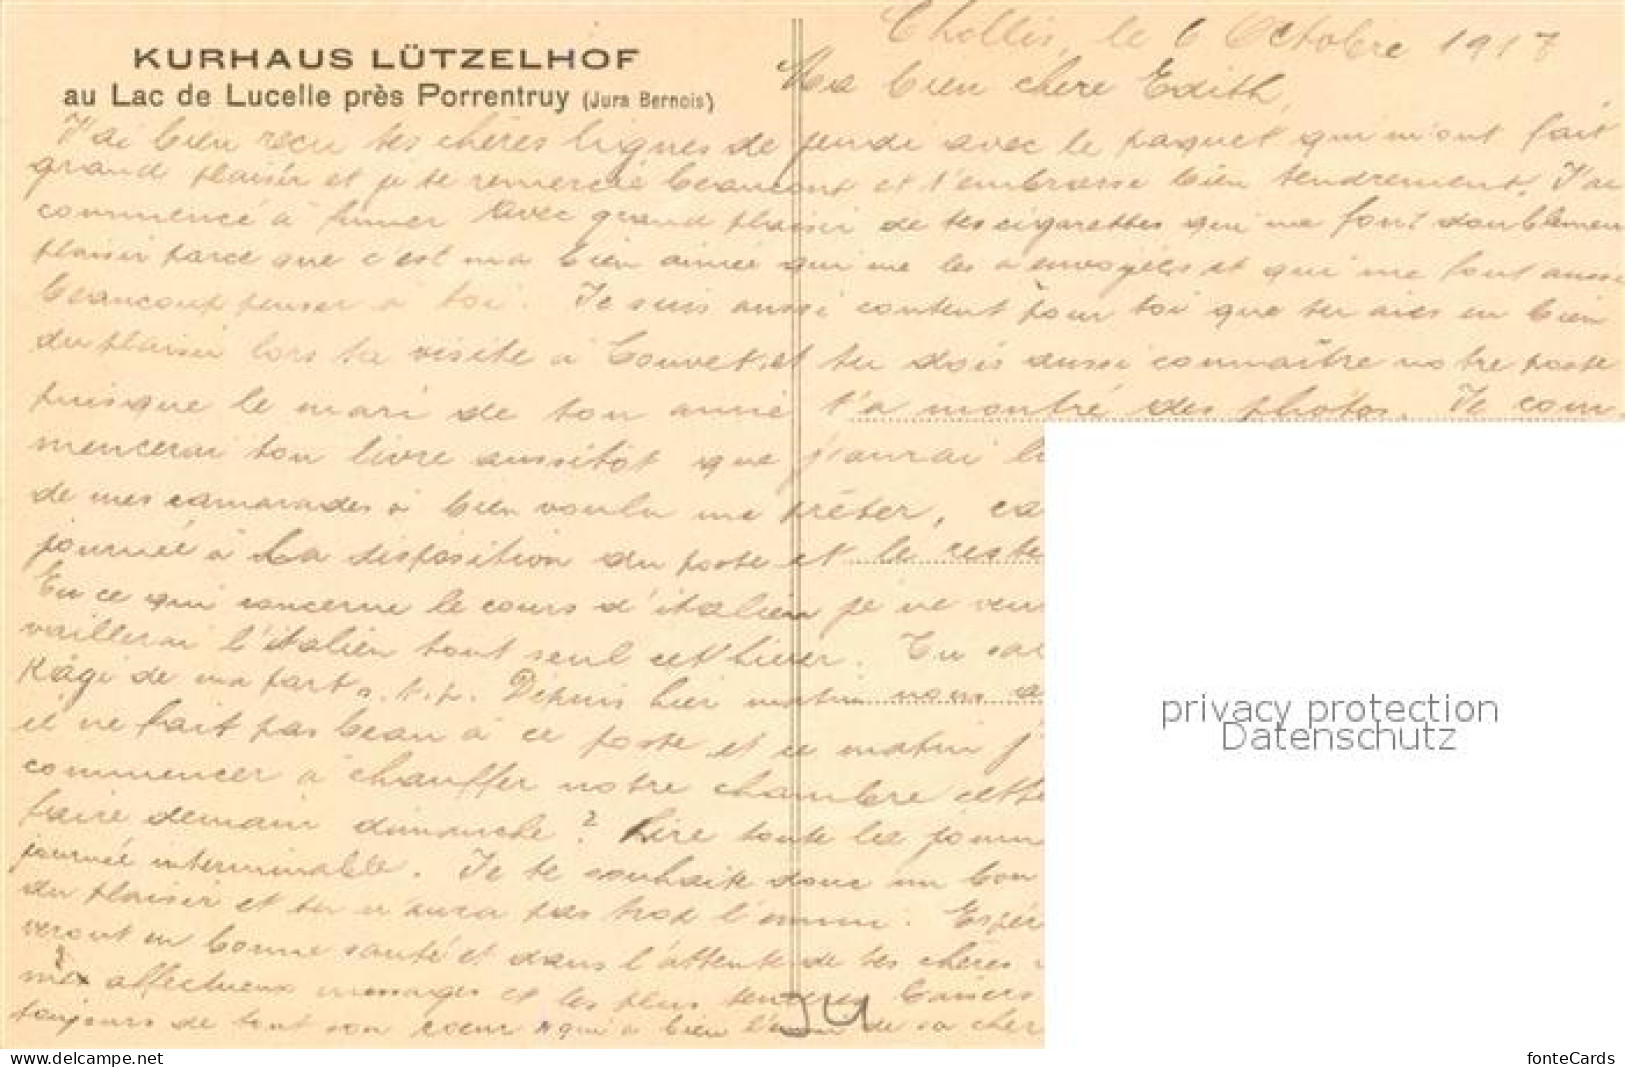 KURHAUS LÜTZELHOF
au Lac de Lucelle près Porrentruy (Jura Bernois)
le 6 Octobre 1917
Ma bien chère Edith,
J'ai bien reçu tes chères lignes de jeudi avec le paquet qui m'ont fait
grand plaisir et je te remercie beaucoup et t'embrasse bien tendrement. J'ai
commencé à fumer avec grand plaisir de tes cigarettes qui me font doublement
plaisir parce que c'est ma bien aimée qui me les a envoyées et qui me font aussi
beaucoup penser à toi. Je suis aussi content pour toi que tu aies eu bien
du plaisir lors ta visite à Couvet et tu dois aussi connaître notre poste
puisque le mari de ton amie t'a montré des photos. Je com-
mencerai ton livre aussitôt que j'aurai
de mes camarades a bien voulu me prêter,
journée à la disposition du poste et le reste
En ce qui concerne le cours d'italien je ne
vaillerai l'italien tout seul cet hiver. Tu
Kägi de ma part s.t.p. Depuis hier matin nous
il ne fait pas beau à ce poste et ce matin j'
commencer à chauffer notre chambre cette
faire demain dimanche? Lire toute la
journée interminable. Je te souhaite donc un bon
du plaisir et tu n'aura pas trop l'ennui.
veront en bonne santé et dans l'attente de tes chères
mes affectueux messages et les plus tendres baisers
toujours de tout son cœur qui a bien de sa
JU
privacy protection
Datenschutz
www.delcampe.net
fonteCards